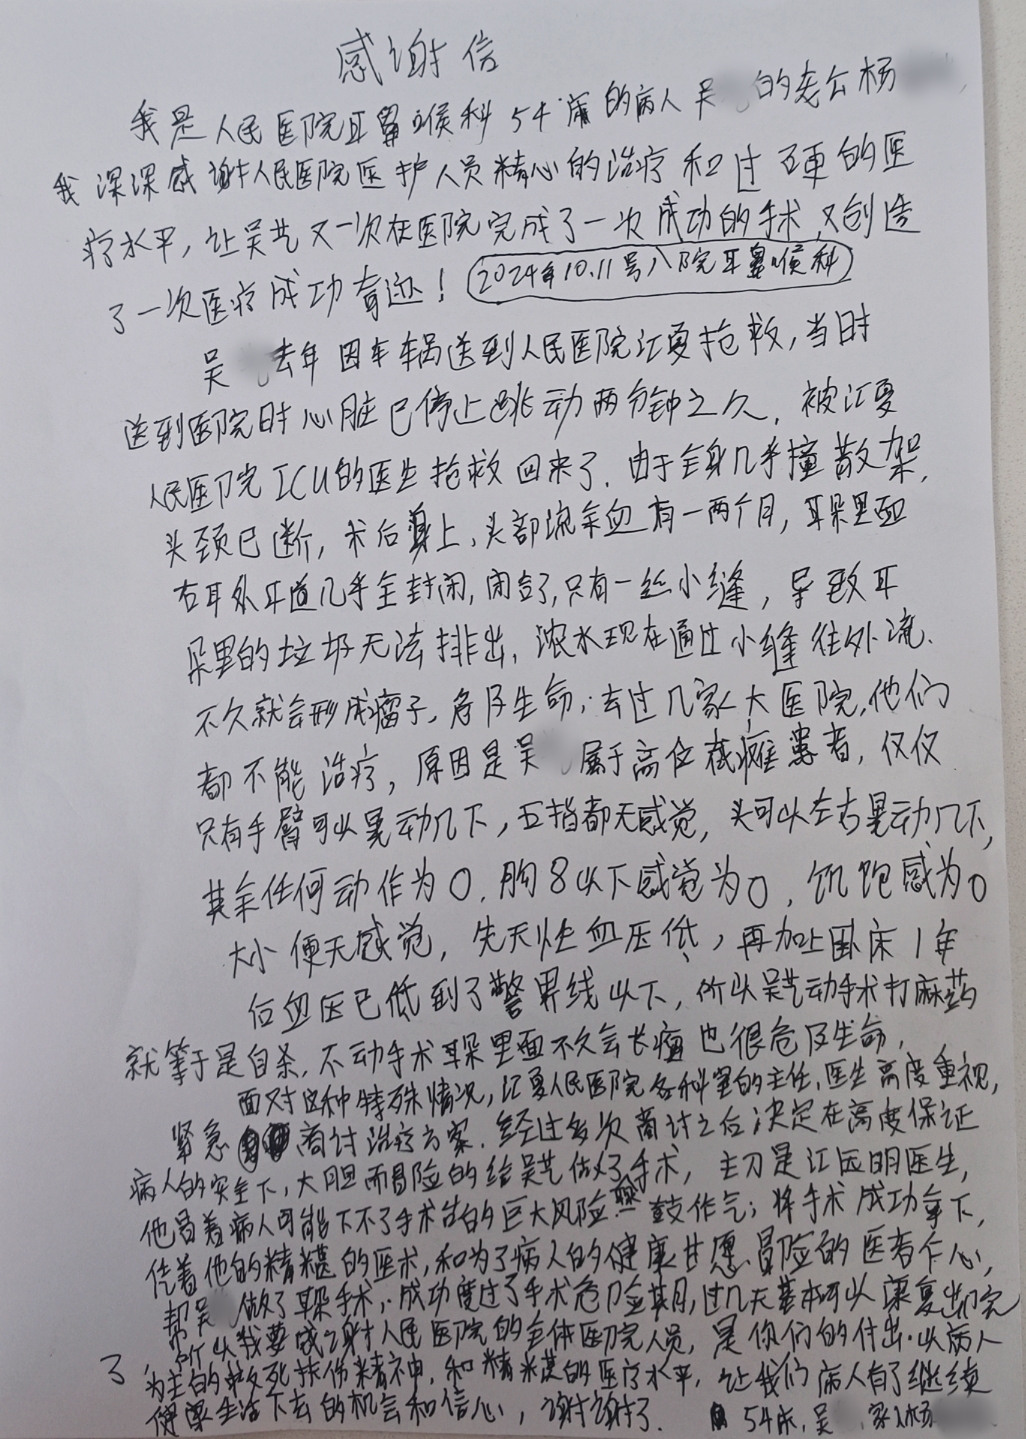 感谢信
我是人民医院耳鼻喉科54床的病人吴 的老公杨
我深深感谢人民医院医护人员精心的治疗和过硬的医
疗水平,让吴艺又一次在医院完成了一次成功的手术,又创造
了一次医疗成功奇迹!(2024年10.11号入院耳鼻喉科)
吴 去年因车祸送到人民医院江夏抢救,当时
送到医院时心脏已停止跳动两分钟之久,被江夏
人民医院ICU的医生抢救回来了.由于全身几乎撞散架,
头颈已断,术后身上,头部流余血有一两个月,耳朵里面
右耳外耳道几乎全封闭,闭合了,只有一丝小缝,导致耳
朵里的垃圾无法排出,浓水现在通过小缝往外流.
不久就会形成瘤子,危及生命;去过几家大医院,他们
都不能治疗,原因是吴 属于高位截瘫患者,仅仅
只有手臂可以晃动几下,五指都无感觉,头可以左右晃动几下,
其余任何动作为0.胸8以下感觉为0,饥饱感为0
大小便无感觉,先天性血压低,再加上卧床1年
后血压已低到了警界线以下,所以吴艺动手术打麻药
就等于是自杀,不动手术耳朵里面不久会长瘤也很危及生命,
面对这种特殊情况,江夏人民医院各科室的主任,医生高度重视,
紧急商讨治疗方案.经过多次商讨之后决定在高度保证
病人的安全下,大胆而冒险的给吴艺做了手术,主刀是江医明医生,
他冒着病人可能下不了手术台的巨大风险 鼓作气;将手术成功拿下,
凭着他的精湛的医术,和为了病人的健康甘愿冒险的医者仁心,
帮吴 做了耳朵手术,成功度过了手术危险期,过几天基本可以康复出院
了 所以我要感谢人民医院的全体医院人员,是你们的付出.以病人
为主的救死扶伤精神,和精湛的医疗水平,让我们病人有了继续
健康生活下去的机会和信心,谢谢了. 54床,吴 ,家人杨